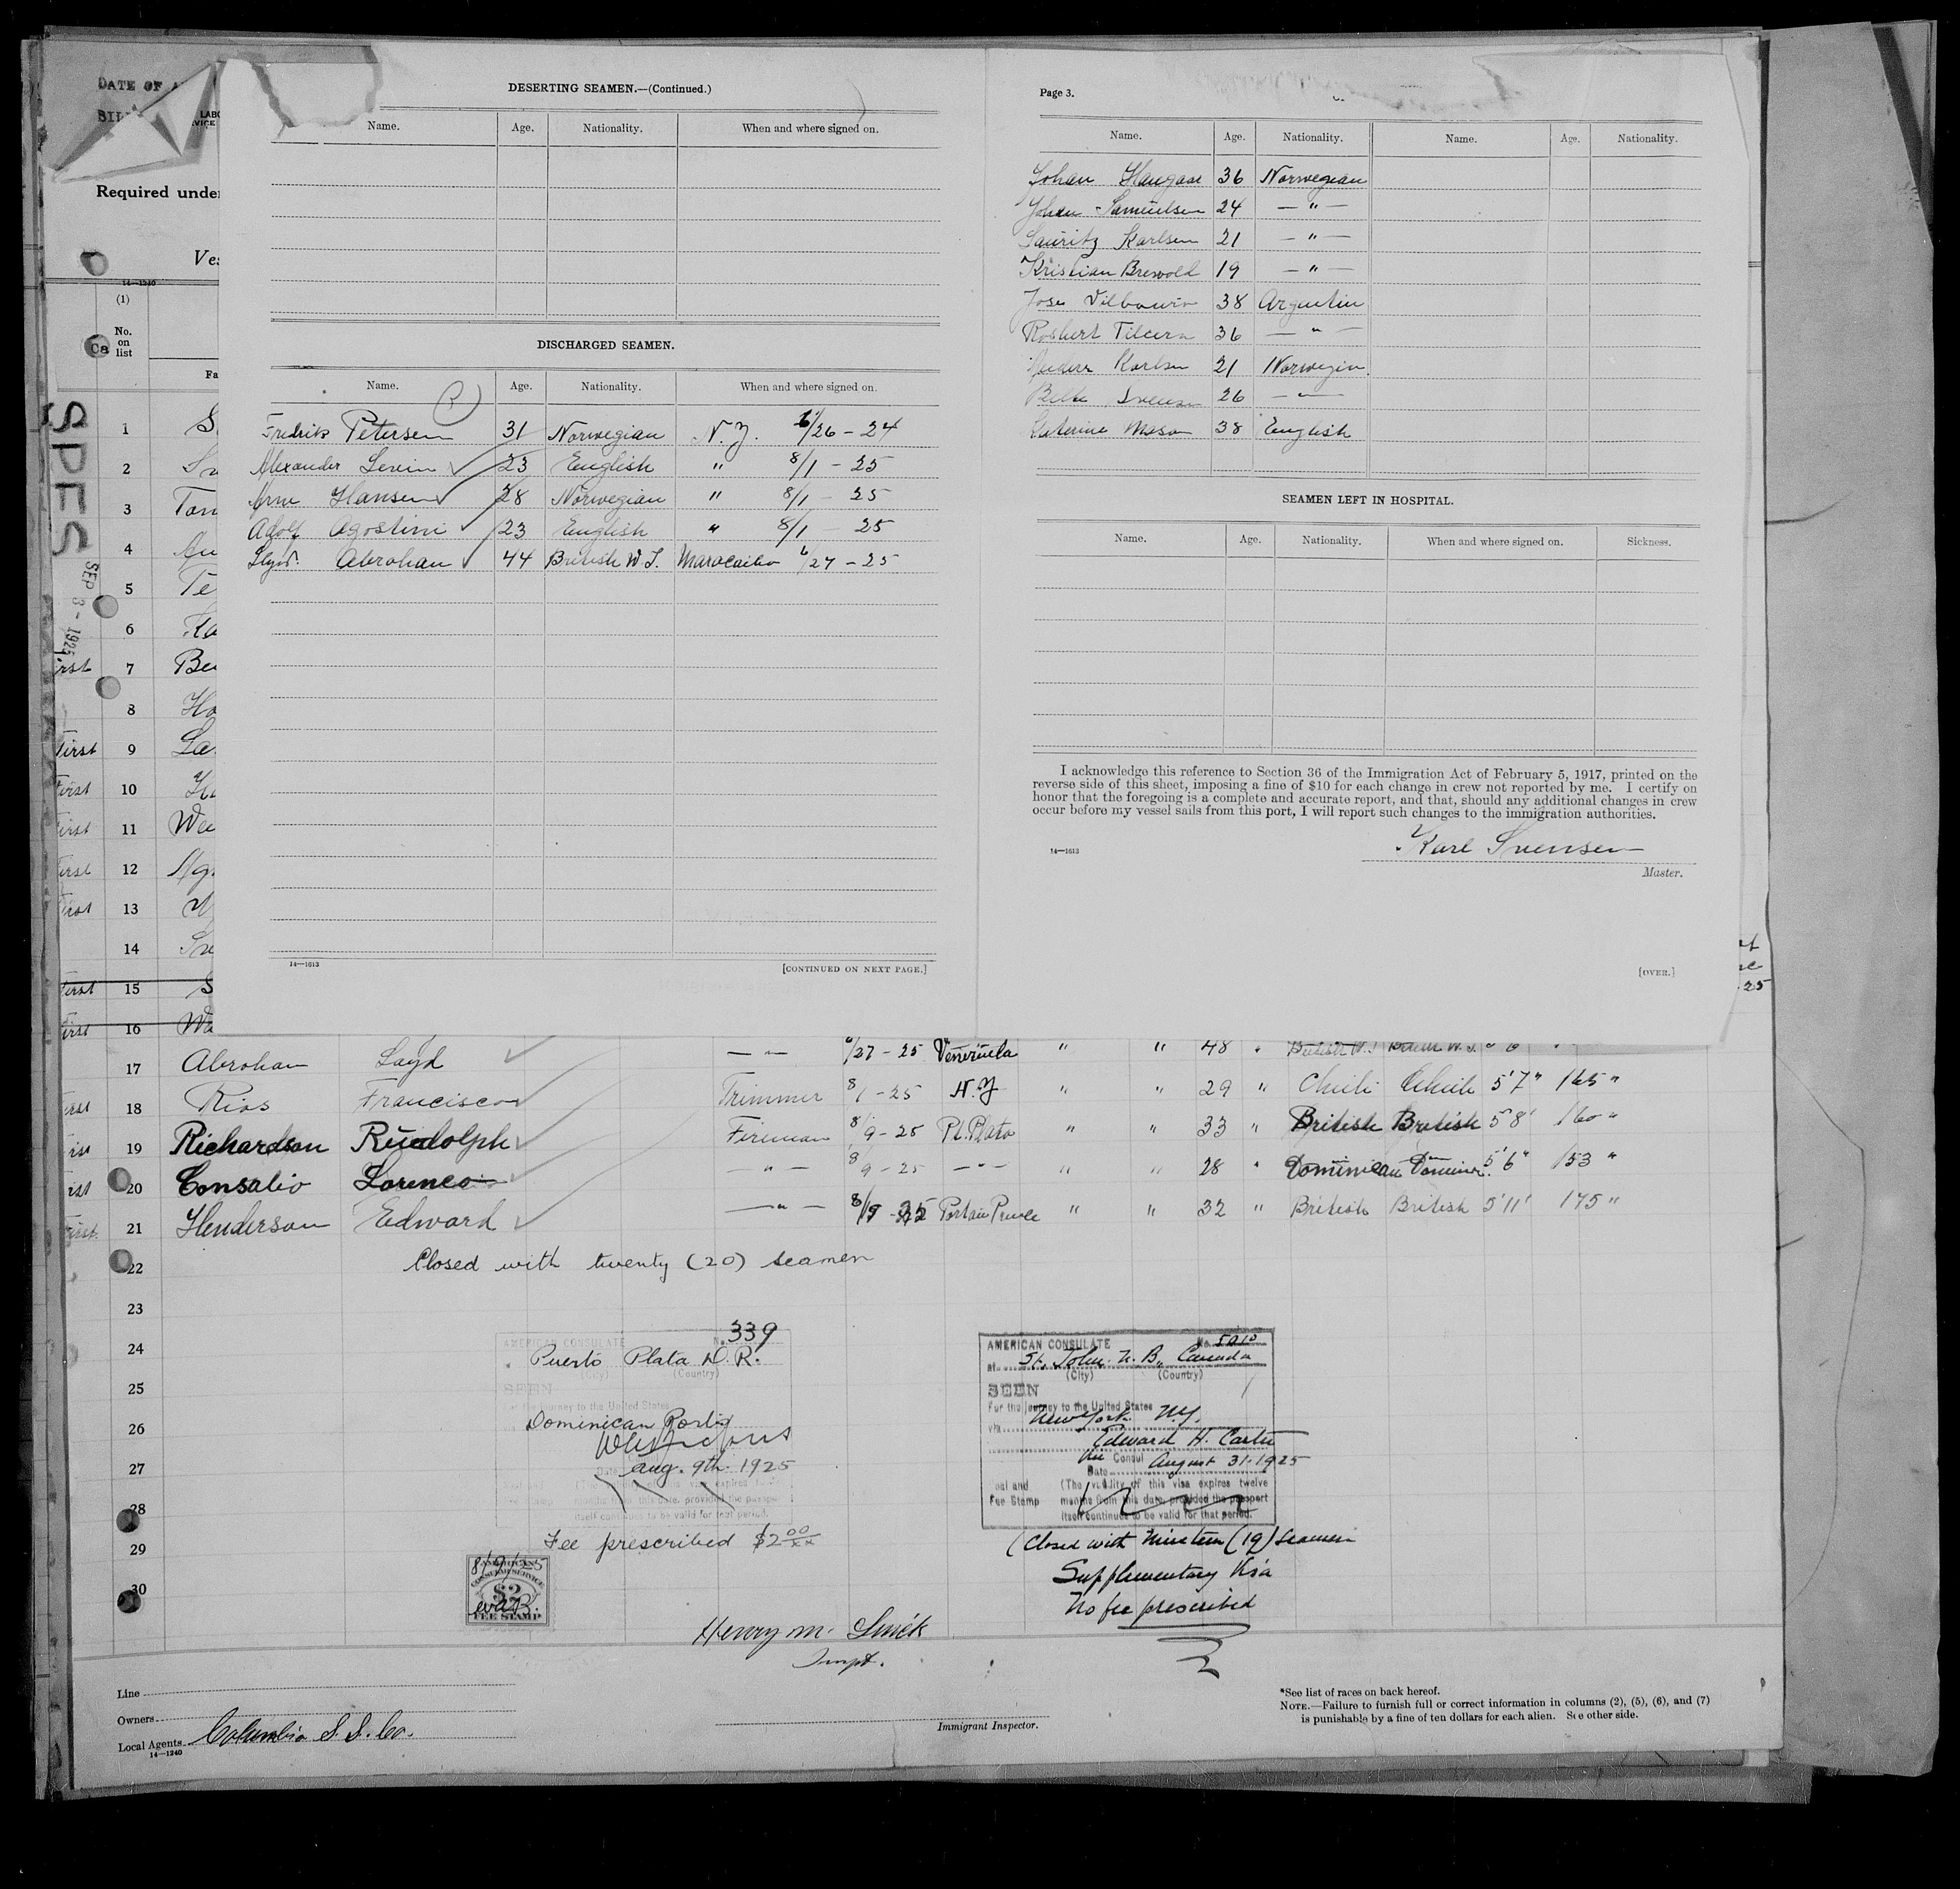 DATE OF
Required under
14—1240
(1)
No.
on
list
Fa
DESERTING SEAMEN.—(Continued.)
Name. Age. Nationality. When and where signed on.
DISCHARGED SEAMEN.
Name. Age. Nationality. When and where signed on.
Fredrik Petersen 31 Norwegian N.Y. 6/26 - 24
Alexander Levin 23 English " 8/1 - 25
Arne Hansen 28 Norwegian " 8/1 - 25
Adolf Agostini 23 English " 8/1 - 25
Abrahan 44 British W.I. Maracaibo 6/27 - 25
14—1613
[CONTINUED ON NEXT PAGE.]
Page 3.
Name. Age. Nationality. Name. Age. Nationality.
Johan Haugaas 36 Norwegian
Johan Samuelsen 24 — " —
Lauritz Karlsen 21 — " —
Kristian Brevold 19 — " —
Jose 38 Argentin
36 — " —
Karlsen 21 Norwegin
26 — " —
Katerine Mason 38 English
SEAMEN LEFT IN HOSPITAL.
Name. Age. Nationality. When and where signed on. Sickness.
I acknowledge this reference to Section 36 of the Immigration Act of February 5, 1917, printed on the
reverse side of this sheet, imposing a fine of $10 for each change in crew not reported by me. I certify on
honor that the foregoing is a complete and accurate report, and that, should any additional changes in crew
occur before my vessel sails from this port, I will report such changes to the immigration authorities.
Karl Svensen
14—1613
Master.
[OVER.]
SEP 3 - 1925
1
2
3
4
5
6
7
8
First 9
First 10
First 11
First 12
First 13
14
First 15
First 16
17 Abrahan Layd — " — 6/27 - 25 Venezuela " " 48 " British W.I. British W.I.
18 Rios Francisco Trimmer 8/1 - 25 N.Y " " 29 " Chili Chili 5'7" 165 "
19 Richardson Rudolph Fireman 8/9 - 25 Pt. Plata " " 33 " British British 5'8" 160 "
20 Consalio Lorenco — " — 8/9 - 25 — " — " " 28 " Dominican 5'6" 153 "
21 Henderson Edward — " — Port au Prince " " 32 " British British 5'11" 175 "
Closed with twenty (20) seamen
22
23
24
25
26
27
28
29
30
AMERICAN CONSULATE No. 339
Puerto Plata D. R.
(City) (Country)
SEEN
For the journey to the United States
Aug. 9th. 1925
itself continues to be valid for that period.
Fee prescribed $2 00/xx
8/9/25
AMERICAN
CONSULAR SERVICE
$2
FEE STAMP
AMERICAN CONSULATE No. 5010
at St. John N. B., Canada
(City) (Country)
SEEN
For the journey to the United States
via New York N.Y.
Edward H. Carter
Consul
Date August 31. 1925
(The validity of this visa expires twelve
Fee Stamp months from this date, provided the passport
itself continues to be valid for that period.
(Closed with Nineteen (19) Seamen
Supplementary Visa
No fee prescribed
Henry M.
Line
Owners
Local Agents Columbia S. S. Co.
14—1240
Immigrant Inspector.
*See list of races on back hereof.
NOTE.—Failure to furnish full or correct information in columns (2), (5), (6), and (7)
is punishable by a fine of ten dollars for each alien. See other side.